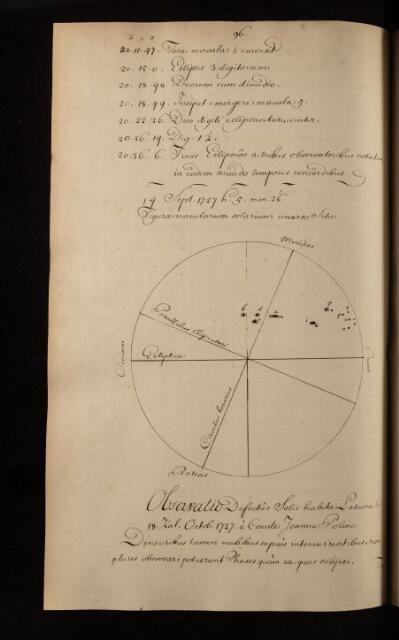 96.
h. , ,,
20. 11. 47. Tota macula 1 emersit
20. 15. 0. Eclipsis 3 digitorum
20. 18. 48 Duorum cum dimidio.
20. 18. 49. Incipit emergere macula 5.
20. 22. 26. Duo digiti eclipsantur, circiter.
20. 26. 19. Dig. 1 ½.
20. 36. 6. Finis Eclipseos a tribus observatoribus notatus
in eodem secundo temporis concordibus.
14 Sept. 1727 h. 5. min. 26
Figura macularum solarium inverso situ
Meridies
6
2
5
Parallelus Aequatori
Ecliptica
Occasus
Circulus horarius
Boreas
Observatio Defectus Solis habita Patavii
18. Kal. Octob. 1727. à Comite Joanne Poleno
Densioribus tamen nubibus saepius intercurrentibus, non
plures observari potuerunt Phases quàm eae quas subjeci.